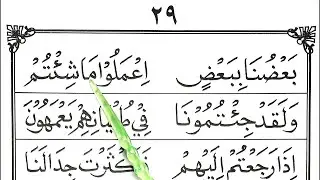 ٢٩
بَعْضُنَا بِبَعْضٍ اِعْمَلُوْا مَا شِئْتُمْ
وَلَقَدْ جِئْتُمُوْنَا فِيْ طُغْيَانِهِمْ يَعْمَهُوْنَ
اِذَا رَجَعْتُمْ اِلَيْهِمْ فَاَكْثَرْتَ جِدَالَنَا